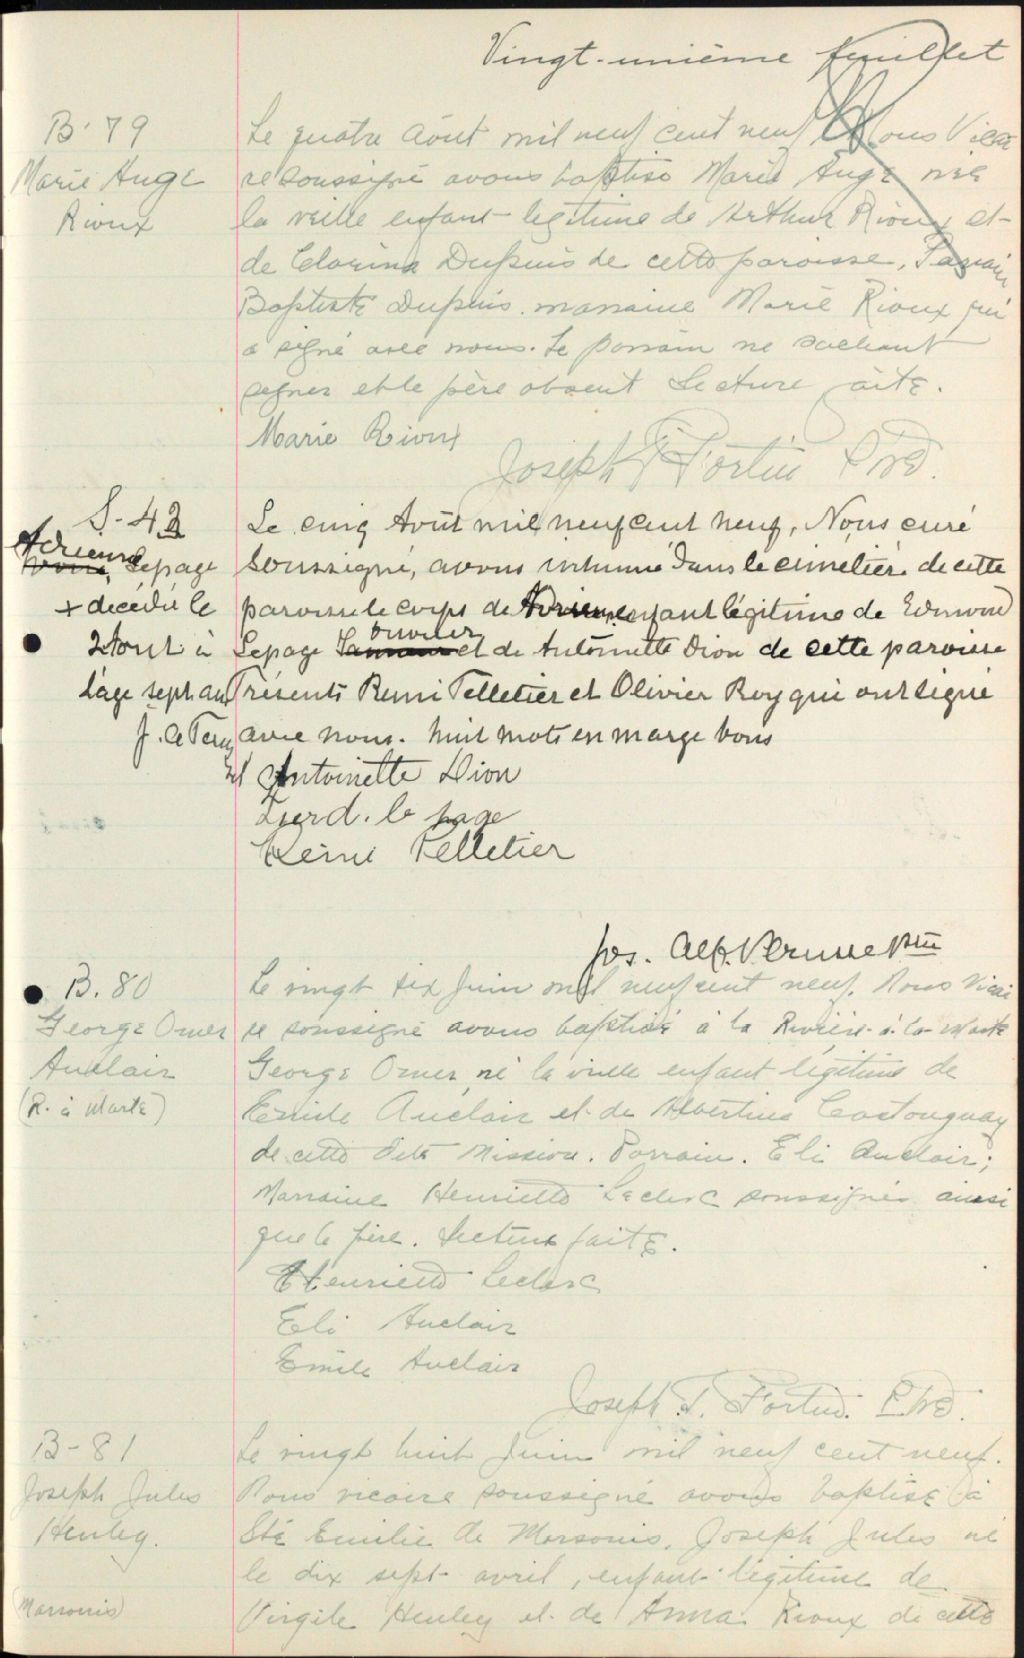 Vingt-unième feuillet
B-79
Marie Ange
Rioux
Le quatre Août mil neuf cent neuf Nous Vicai
re soussigné avons baptisé Marie Ange née
la veille enfant légitime de Arthur Rioux et
de Clarina Dupuis de cette paroisse, Parrain
Baptiste Dupuis. marraine Marie Rioux qui
a signé avec nous. Le parrain ne sachant
signer et le père absent Lecture faite.
Marie Rioux
Joseph T Fortin Ptre
S-42
Adrienne
Lepage
+ décédée le
2 Aout à
l'age sept ans
Le cinq Août mil neuf cent neuf, Nous curé
soussigné, avons inhumé dans le cimetière de cette
paroisse le corps de Adrienne enfant légitime de Edmond
Lepage ouvrier et de Antoinette Dion de cette paroisse
Présents Remi Pelletier et Olivier Roy qui ont signé
avec nous. huit mots en marge bons
Antoinette Dion
Ferd. le page
Rémi Pelletier
Jos. Alf. Ptre
B. 80
George Omer
Auclair
(R. à Marte)
Le vingt six Juin mil neuf cent neuf. Nous Vicai
re soussigné avons baptisé à la Rivière-à-la-Marte
George Omer, né la veille enfant légitime de
Emile Auclair et de Albertine Castonguay
de cette dite Mission. Parrain. Eli Auclair;
Marraine Henriette Leclerc soussignés ainsi
que le père. Lecture faite.
Henriette Leclerc
Eli Auclair
Emile Auclair
Joseph T. Fortin. Ptre.
B-81
Joseph Jules
Henley.
(Marsouis)
Le vingt huit Juin mil neuf cent neuf.
Nous vicaire soussigné avons baptisé à
Ste Emilie de Marsouis, Joseph Jules né
le dix sept avril, enfant légitime de
Virgile Henley et de Anna Rioux de cette